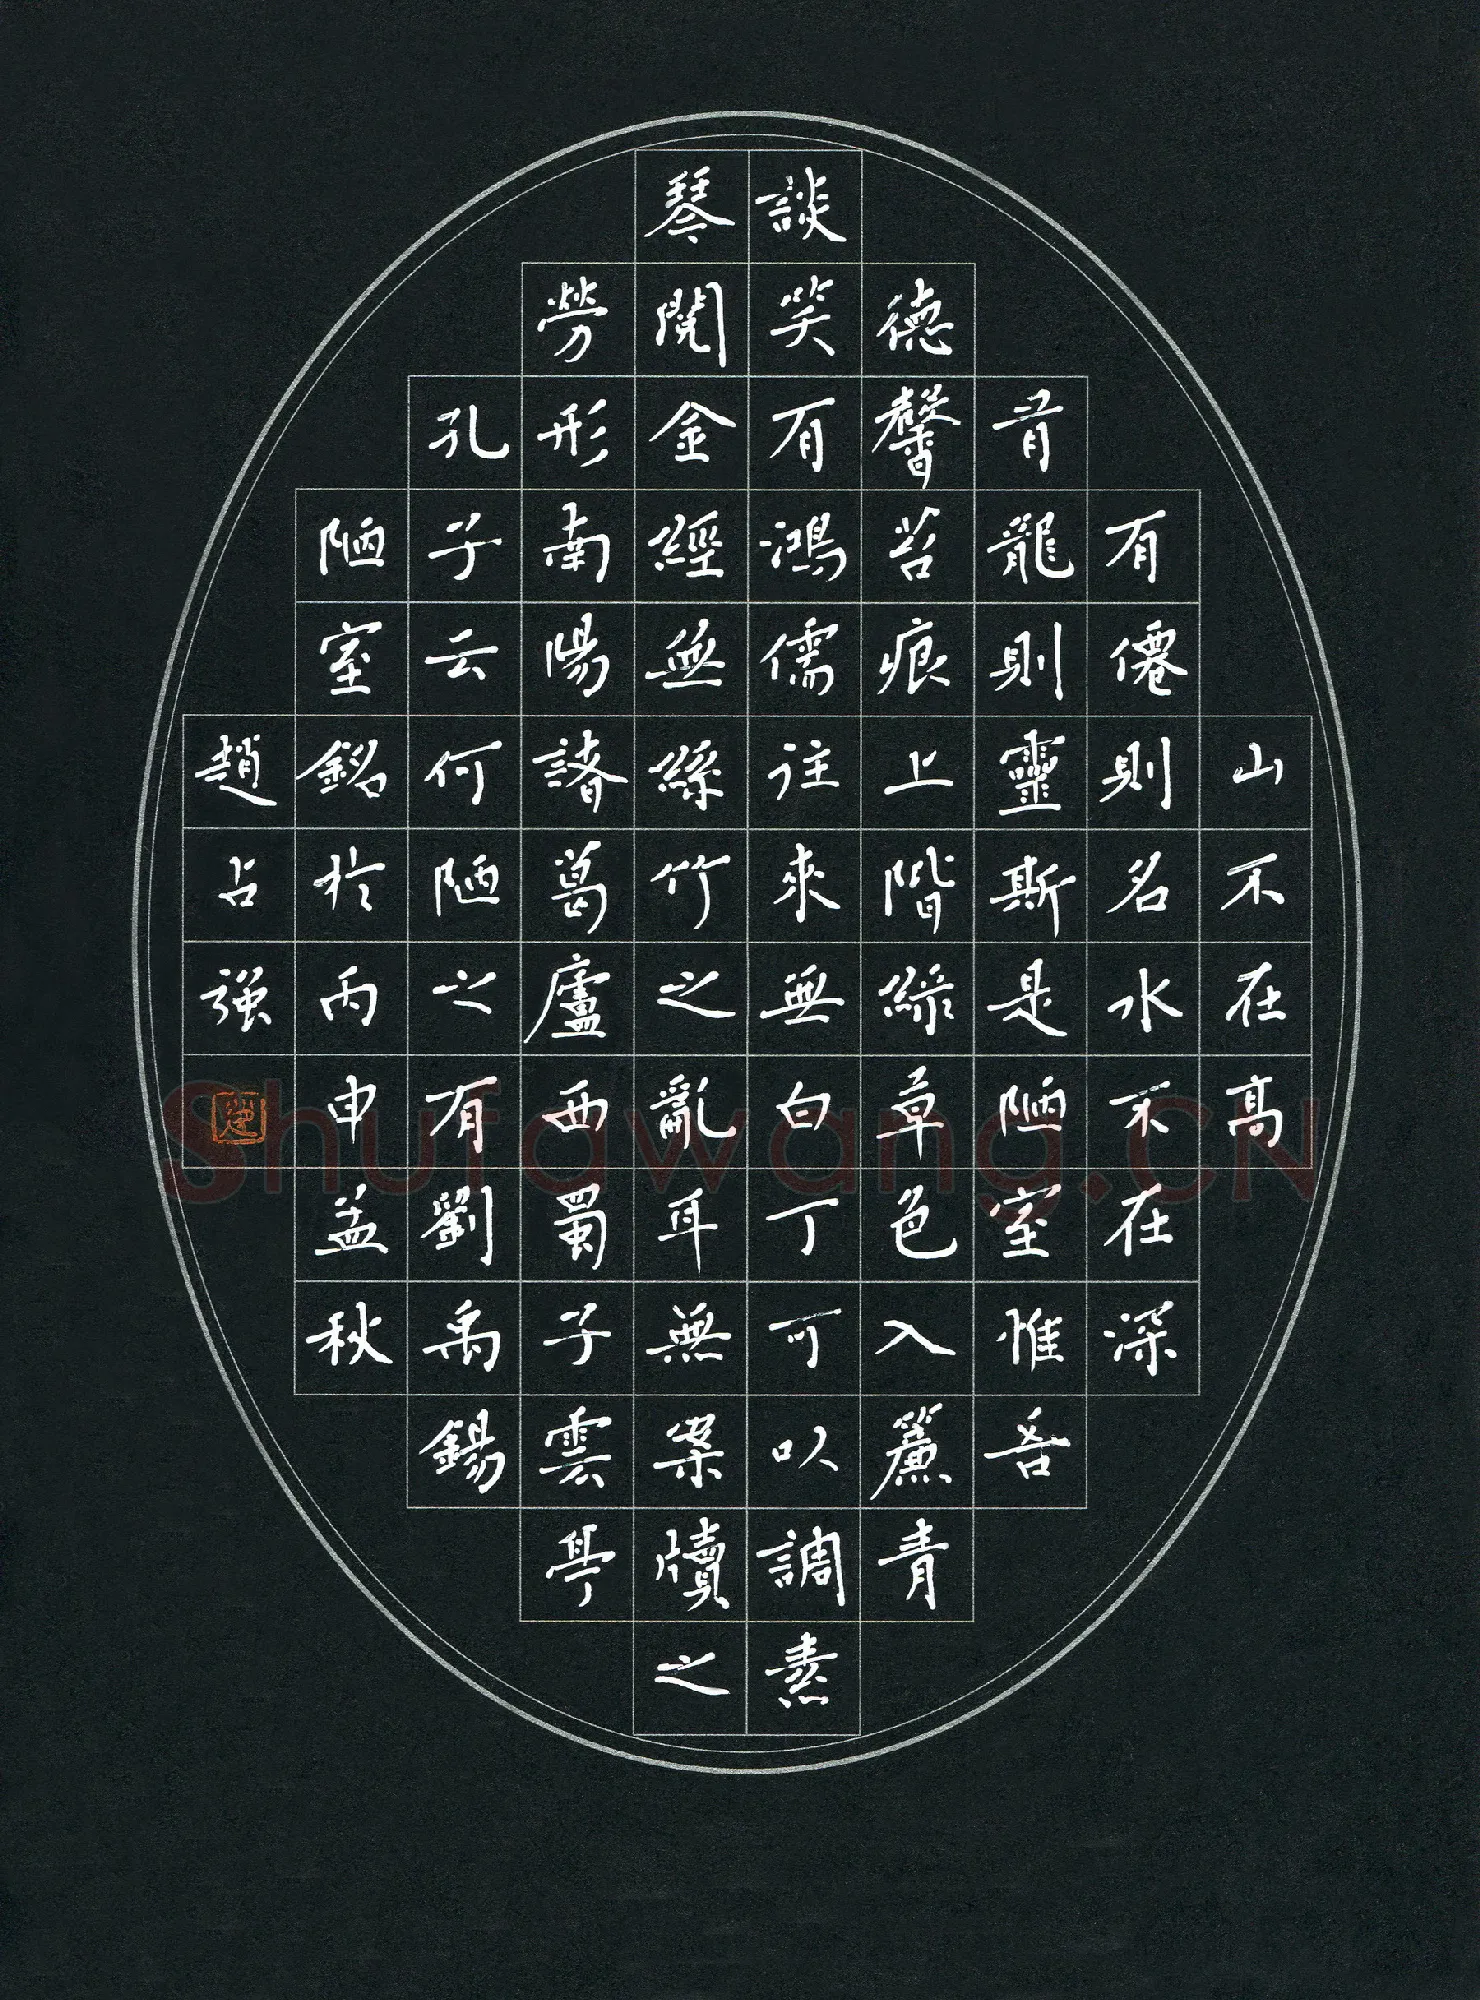 山不在高
有僊則名水不在深
有龍則靈斯是陋室惟吾
德馨苔痕上階綠草色入簾青
談笑有鴻儒往來無白丁可以調素
琴閱金經無絲竹之亂耳無案牘之
勞形南陽諸葛廬西蜀子雲亭
孔子云何陋之有劉禹錫
陋室銘於丙申孟秋
趙占強
Shufawang.CN